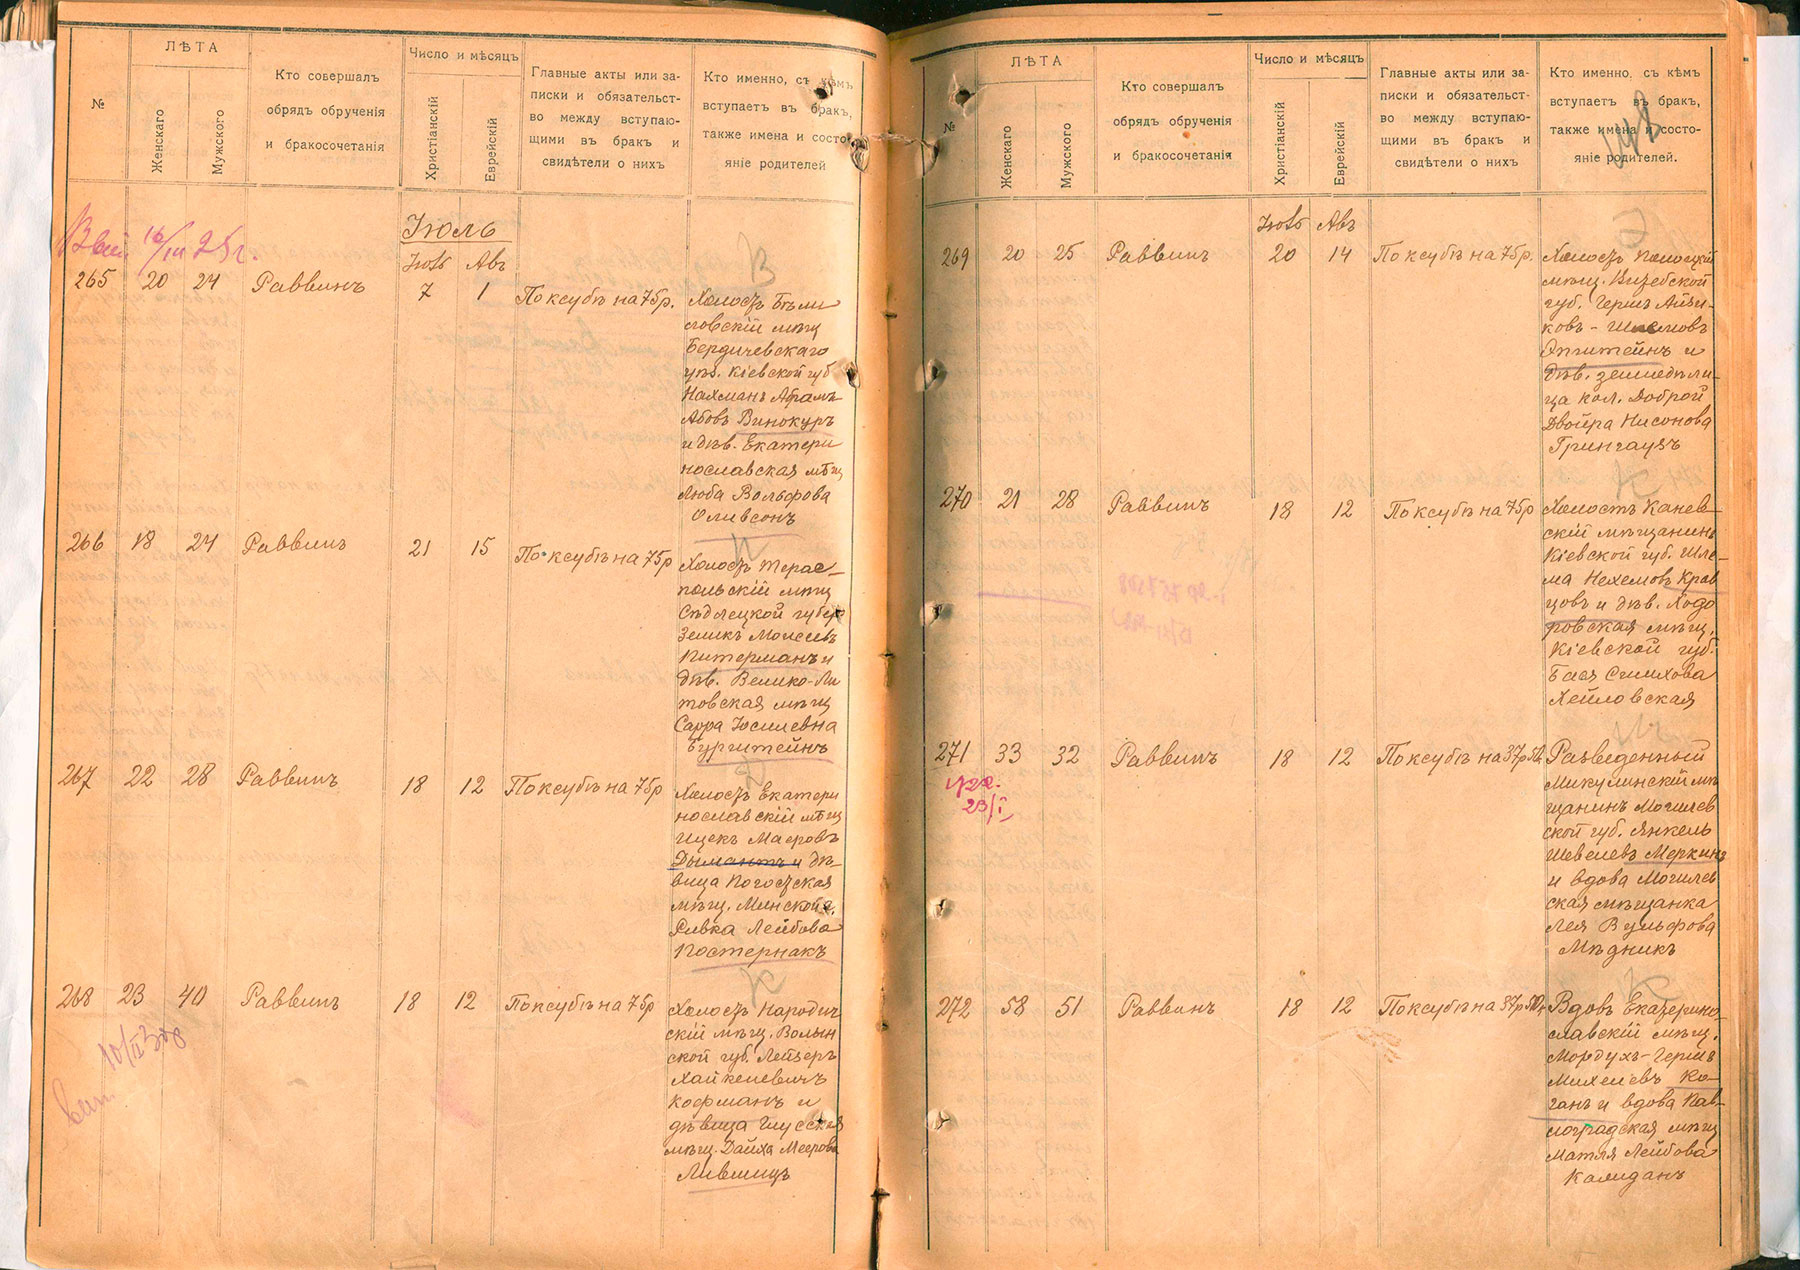 №
ЛѢТА
Женскаго
Мужского
Кто совершалъ
обрядъ обрученія
и бракосочетанія
Число и мѣсяцъ
Христіанскій
Еврейскій
Главные акты или за-
писки и обязательст-
во между вступаю-
щими въ бракъ и
свидѣтели о нихъ
Кто именно, съ кѣмъ
вступаетъ въ бракъ,
также имена и состо-
яніе родителей
16/III 25 г.
Іюль
Іюль Авъ
265 20 24 Раввинъ 7 1 По ксубѣ на 75 р.
Холостъ Бѣли
ловскій мѣщ
Бердичевскаго
уѣз. Кіевской губ
Нахманъ Абрамъ
Абовъ Винокуръ
и дѣв. Екатери
нославская мѣщ
Люба Вольфова
Оливсонъ
266 18 24 Раввинъ 21 15 По ксубѣ на 75 р
Холостъ Терас-
польскій мѣщ
Сѣдлецкой губер
Зеликъ Моисеевъ
Питерманъ и
дѣв. Велико-Ли
товская мѣщ
Сарра Іосилевна
Бурштейнъ
267 22 28 Раввинъ 18 12 По ксубѣ на 75 р
Холостъ Екатери
нославскій мѣщ
Ицекъ Маеровъ
Дымантъ и дѣ-
вица Погостская
мѣщ. Минской г.
Ривка Лейбова
Постернакъ
268 23 40 Раввинъ 18 12 По ксубѣ на 75 р
Холостъ Народич
скій мѣщ. Волын
ской губ. Лейзеръ
Хайкелевичъ
Кофманъ и
дѣвица Глусская
мѣщ. Дайха Меерова
Лившицъ
10/II 30 г
№
ЛѢТА
Женскаго
Мужского
Кто совершалъ
обрядъ обрученія
и бракосочетанія
Число и мѣсяцъ
Христіанскій
Еврейскій
Главные акты или за-
писки и обязательст-
во между вступаю-
щими въ бракъ и
свидѣтели о нихъ
Кто именно, съ кѣмъ
вступаетъ въ бракъ,
также имена и состо-
яніе родителей.
Іюль Авъ
269 20 25 Раввинъ 20 14 По ксубѣ на 75 р.
Холостъ Полоцкій
мѣщ. Витебской
губ. Гершъ Айзи-
ковъ-Шлемовъ
Эпштейнъ и
дѣв. земледѣли-
ца кол. Доброй
Двойра Нисонова
Грингаузъ
270 21 28 Раввинъ 18 12 По ксубѣ на 75 р
Холостъ Канев-
скій мѣщанинъ
Кіевской губ. Шле-
ма Нехемовъ Крав
цовъ и дѣв. Ходо
ровская мѣщ.
Кіевской губ.
Бася Смихова
Хейловская
271 33 32 Раввинъ 18 12 По ксубѣ на 37 р 50 к
23/I
Разведенный
Микулинскій мѣ
щанинъ Могилев
ской губ. Янкель
Шевелевъ Меркинъ
и вдова Могилев
ская мѣщанка
Лея Вульфова
Мѣдникъ
272 58 51 Раввинъ 18 12 По ксубѣ на 37 р 50 к
Вдовъ Екатерино
славскій мѣщ.
Мордухъ-Гершъ
Михелевъ Ко-
ганъ и вдова Пав-
лоградская мѣщ
Матля Лейбова
Калиданъ